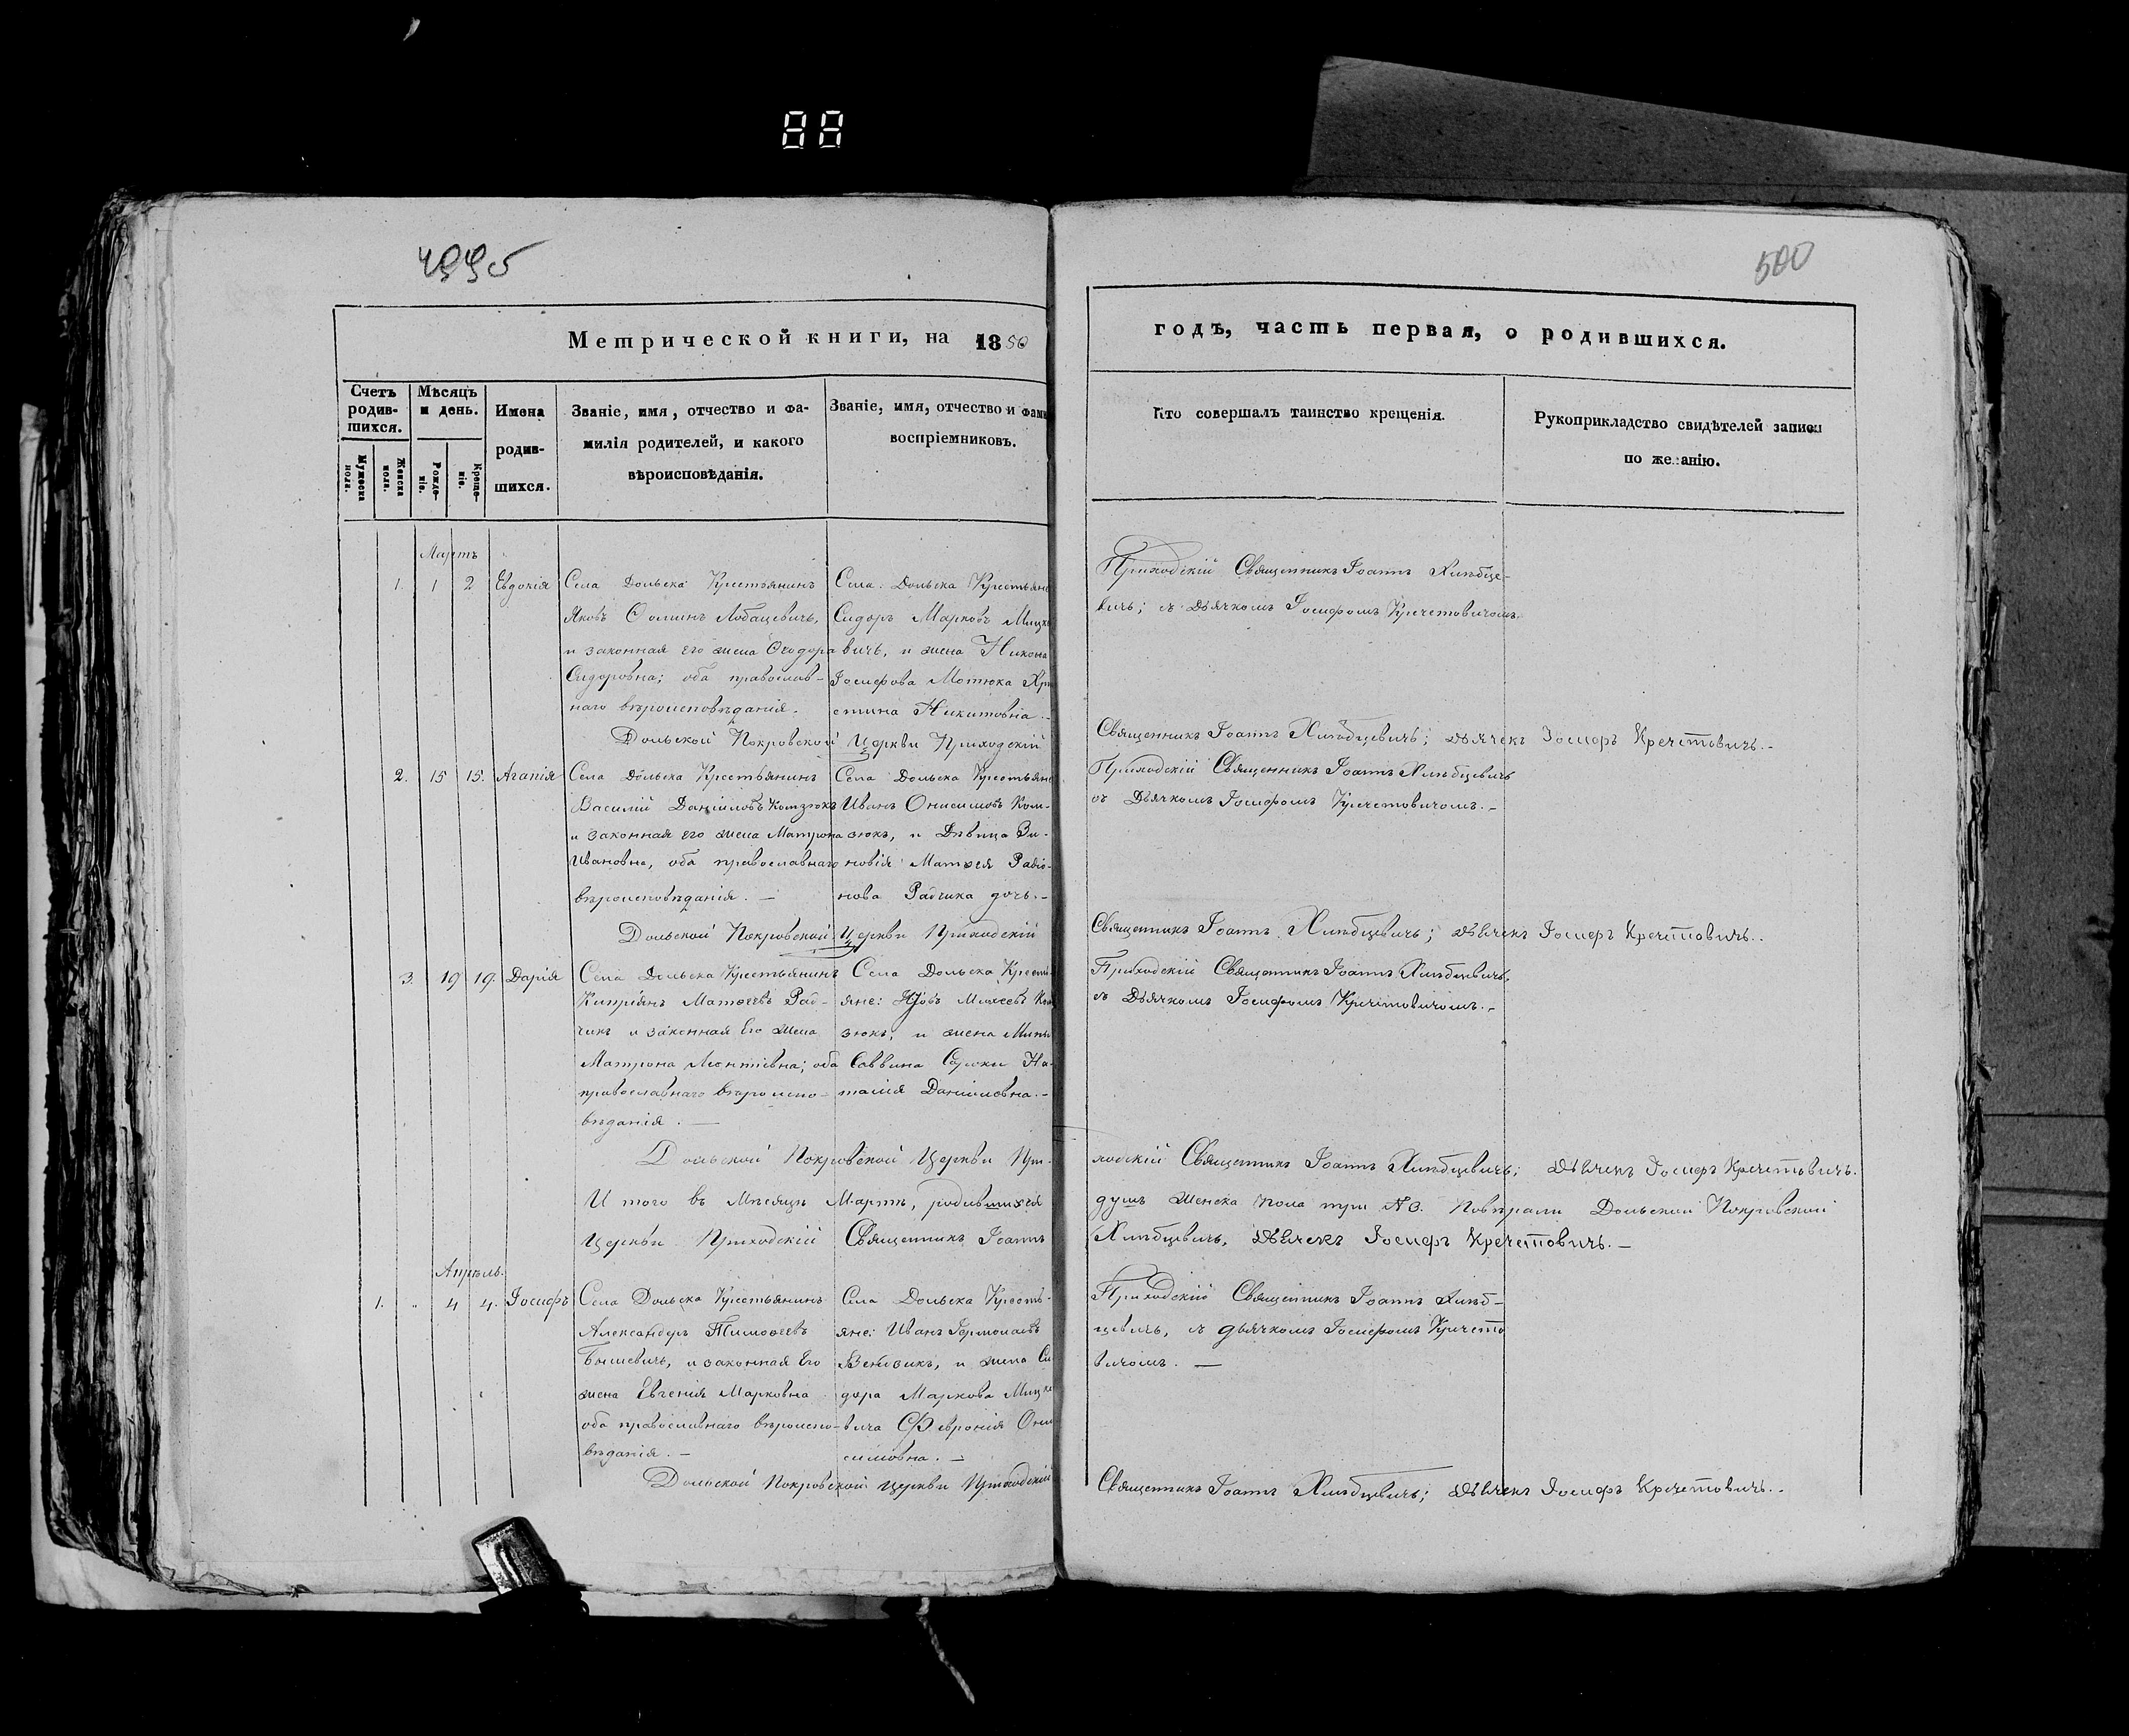 88
500
Метрической книги, на 1850
годъ, часть первая, о родившихся.
Счетъ родив-шихся.
Мѣсяцъ и день.
Имена родив-шихся.
Званіе, имя, отчество и фа-
милія родителей, и какого
вѣроисповѣданія.
Званіе, имя, отчество и фами
воспріемниковъ.
Кто совершалъ таинство крещенія.
Рукоприкладство свидѣтелей записи
по желанію.
Мужеска пола.
Женска пола.
Рожде-ніе.
Креще-ніе.
Мартъ
1. 1 2 Евдокія
Села Дольска Крестьянинъ
Яковъ Ѳоминъ Лобацевичъ,
и законная его жена Ѳеодора
Сидоровна; оба православ-
наго вѣроисповѣданія.
Села Дольска Крестьяне
Сидоръ Марковъ Мицке
вичъ, и жена Никона
Іосифова Мотюка Хри
стина Никитовна.-
Приходскій Священникъ Іоаннъ Хлѣбце-
вичъ; съ Дьячкомъ Іосифомъ Кречетовичомъ.
Дольской Покровской Церкви Приходскій Священникъ Іоаннъ Хлѣбцевичъ; дьячекъ Іосифъ Кречетовичъ.-
2. 15 15. Агапія
Села Дольска Крестьянинъ
Василій Даніиловъ Комзюкъ
и законная его жена Матрона
Ивановна, оба православнаго
вѣроисповѣданія. —
Села Дольска Крестьяне
Иванъ Онисимовъ Ком-
зюкъ, и Дѣвица Зи-
новія Матѳея Радіо-
нова Радчика дочь.-
Приходскій Священникъ Іоаннъ Хлѣбцевичъ
съ Дьячкомъ Іосифомъ Кречетовичомъ.-
Дольской Покровской Церкви Приходскій Священникъ Іоаннъ Хлѣбцевичъ; дьячекъ Іосифъ Кречетовичъ..
3. 19 19. Дарія
Села Дольска Крестьянинъ
Кипріянъ Матѳеевъ Рад-
чикъ и законная Его Жена
Матрона Леонтіевна; оба
православнаго вѣроиспо-
вѣданія. —
Села Дольска Кресть
яне: Іовъ Моѵсеевъ Ком
зюкъ, и жена
Саввина Сороки На-
талія Даніиловна.-
Приходскій Священникъ Іоаннъ Хлѣбцевичъ,
съ Дьячкомъ Іосифомъ Кречетовичомъ.-
Дольской Покровской Церкви При-
ходскій Священникъ Іоаннъ Хлѣбцевичъ; дьячекъ Іосифъ Кречетовичъ.
И того въ Мѣсяцѣ Мартѣ, родившихся душъ Женска пола три №3. Повѣряли Дольской Покровской
Церкви Приходскій Священникъ Іоаннъ Хлѣбцевичъ, дьячекъ Іосифъ Кречетовичъ.—
Апрѣль.
1. „ 4 4. Іосифъ
Села Дольска Крестьянинъ
Александръ Тимоѳеевъ
Бышевичъ, и законная Его
жена Евгенія Марковна
оба православнаго вѣроиспо-
вѣданія.-
Села Дольска Кресть-
яне: Иванъ Гермолаевъ
и жена Си
дора Маркова Мицке
вича Февронія Они
симовна. —
Приходскій Священникъ Іоаннъ Хлѣб-
цевичъ, съ дьячкомъ Іосифомъ Кречето
вичомъ. —
Дольской Покровской Церкви Приходскій Священникъ Іоаннъ Хлѣбцевичъ; дьячекъ Іосифъ Кречетовичъ..